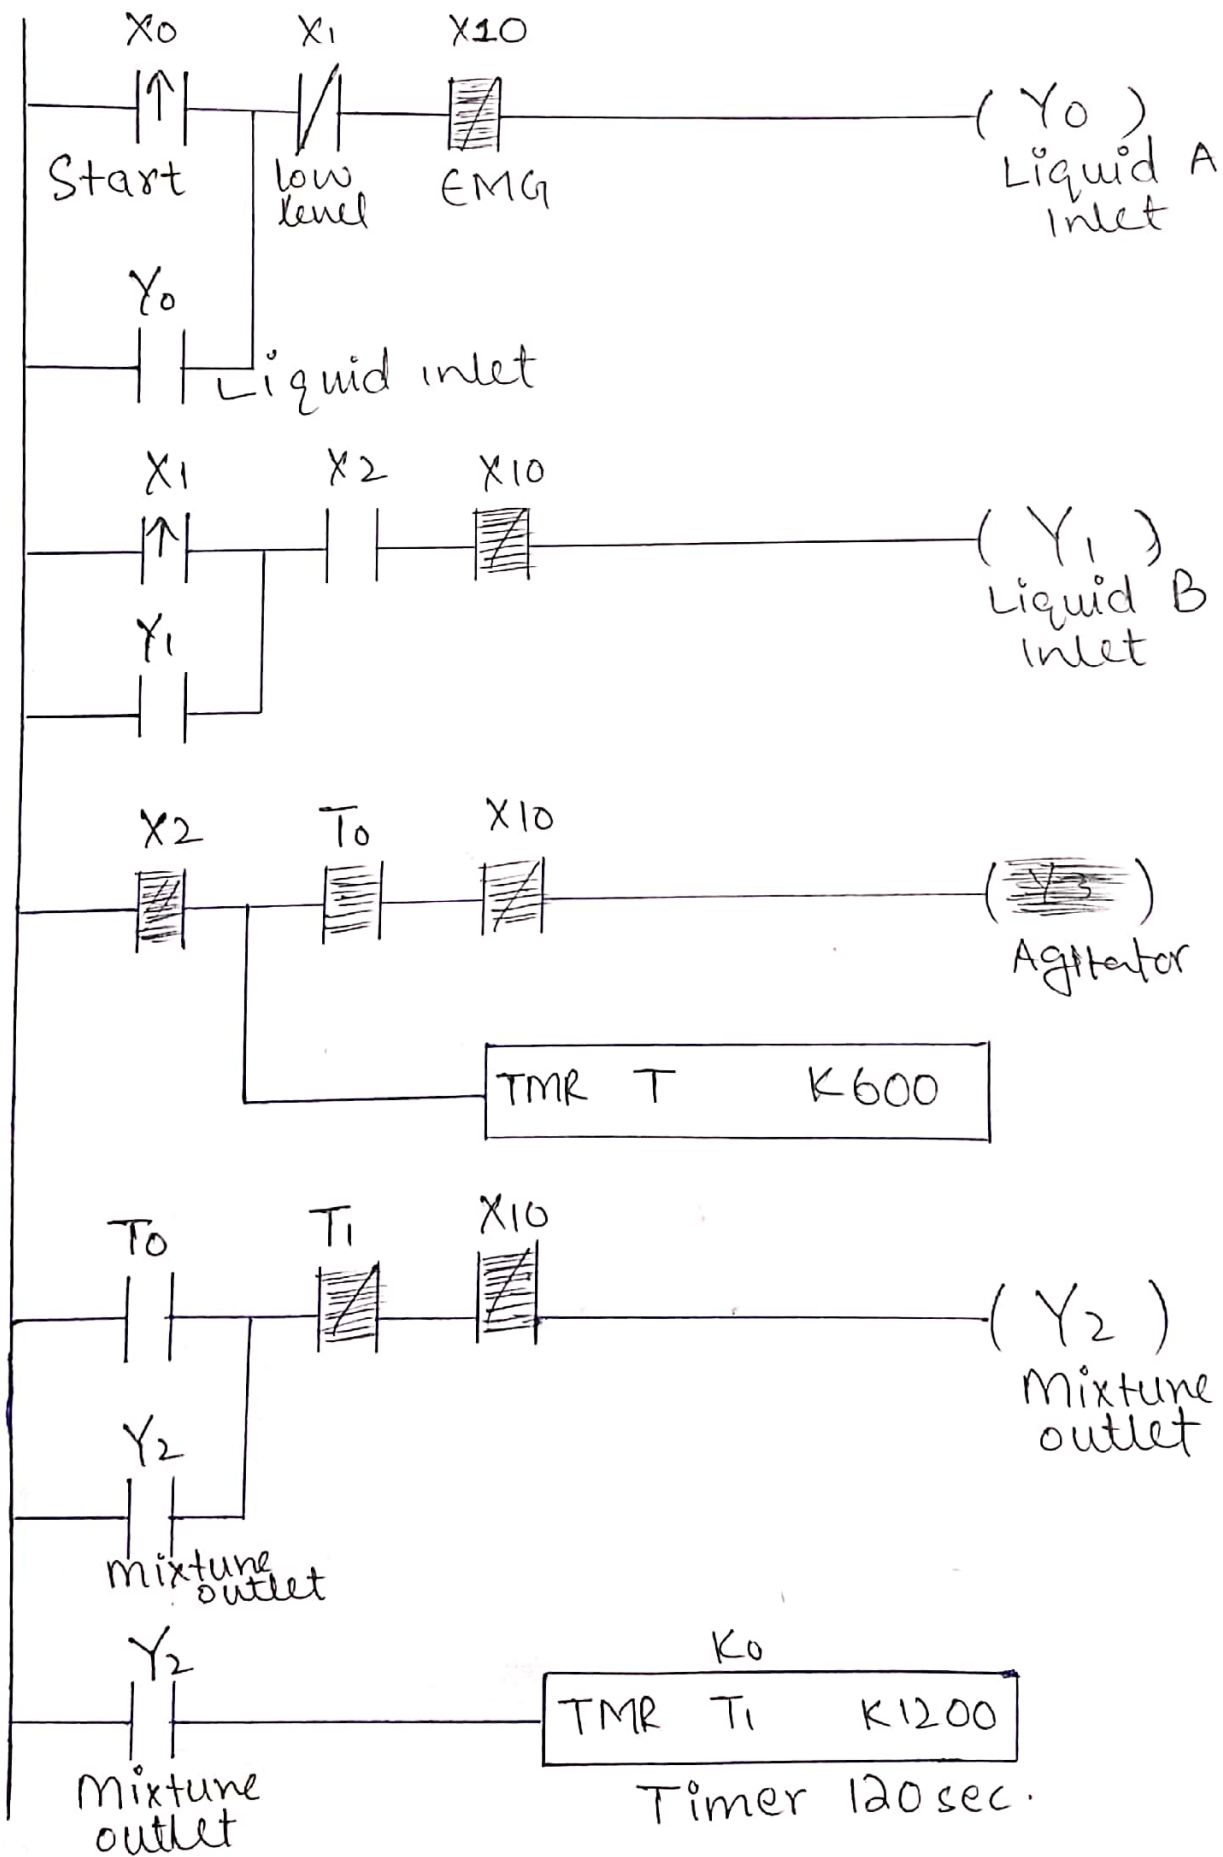 X0 X1 X10
( Y0 )
Start low EMG Liquid A
level Inlet
Y0
Liquid inlet
X1 X2 X10
( Y1 )
Liquid B
Inlet
Y1
X2 T0 X10
( Y3 )
Agitator
TMR T K600
T0 T1 X10
( Y2 )
Mixtune
outlet
Y2
mixtune
outlet
Y2 K0
TMR T1 K1200
Mixtune Timer 120 sec.
outlet